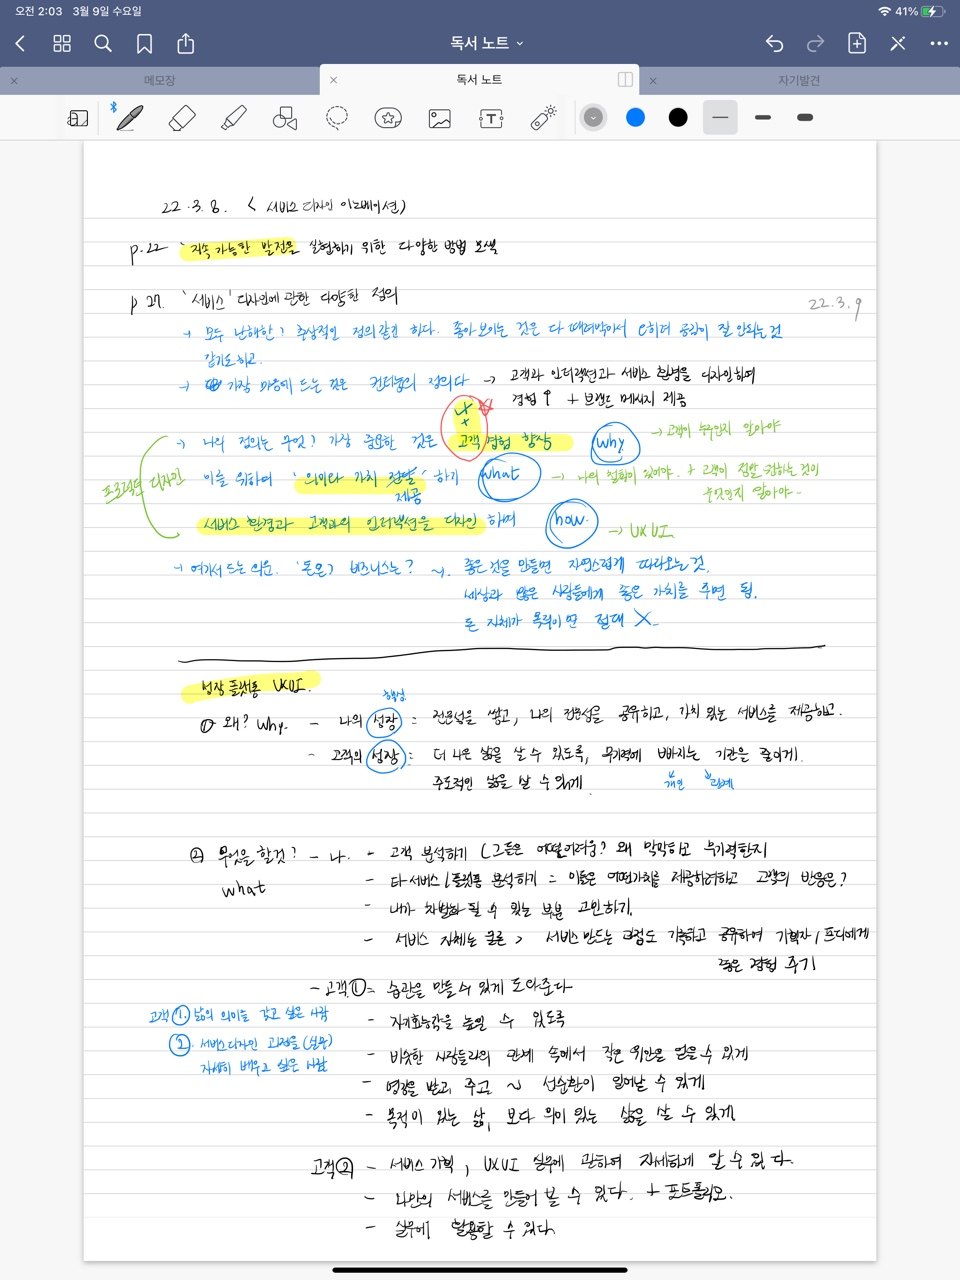 오전 2:03 3월 9일 수요일
41%
독서 노트
메모장
독서 노트
자기발견
22.3.8. <서비스 디자인 이노베이션>
p.22 '지속가능한 발전을 실현하기 위한 다양한 방법 모색
p 27. '서비스' 디자인에 관한 다양한 정의
22.3.9
→ 모두 난해한? 추상적인 정의같긴 하다. 좋아보이는 것은 다 때려박아서 오히려 공감이 잘 안되는 것
같기도하고.
→ 가장 마음에 드는 것은 컨티늄의 정의다 → 고객과 인터랙션과 서비스 환경을 디자인하여
경험↑ + 브랜드 메시지 제공
나
+
→ 나의 정의는 무엇? 가장 중요한 것은 고객 경험 향상 why → 고객이 누구인지 알아야
프로덕트 디자인
이를 위하여 '의미와 가치 전달' 하기 what → 나의 철학이 있어야. + 고객이 정말 원하는 것이
제공
무엇인지 알아야-
서비스 환경과 고객과의 인터랙션을 디자인 하며 how. → UXUI
→ 여기서 드는 의문. '돈은? 비즈니스는? ~. 좋은 것을 만들면 자연스럽게 따라오는 것.
세상과 많은 사람들에게 좋은 가치를 주면 됨.
돈 자체가 목적이면 절대 X-
성장 플랫폼 UXUI.
핵심
① 왜? Why. - 나의 성장 = 전문성을 쌓고, 나의 전문성을 공유하고, 가치 있는 서비스를 제공하고.
- 고객의 성장 = 더 나은 삶을 살 수 있도록, 무기력에 빠지는 기간을 줄이게.
주도적인 삶을 살 수 있게
개인 관계
② 무엇을 할것? - 나. - 고객 분석하기 (그들은 어떤 어려움? 왜 막막하고 무기력한지
what
- 타서비스/플랫폼 분석하기 = 이들은 어떤가치를 제공하려하고 고객의 반응은?
- 내가 차별화 될 수 있는 부분 고민하기.
- 서비스 자체는 물론, 서비스 만드는 과정도 기록하고 공유하여 기획자/프디에게
좋은 경험 주기
- 고객① = 습관을 만들 수 있게 도와준다
고객 ①. 삶의 의미를 갖고 싶은 사람
- 자기효능감을 높일 수 있도록
②. 서비스디자인 과정을 (실무)
자세히 배우고 싶은 사람
- 비슷한 사람들과의 관계 속에서 작은 위안을 얻을 수 있게
- 영감을 받고 주고 ~ 선순환이 일어날 수 있게
- 목적이 있는 삶, 보다 의미 있는 삶을 살 수 있게
고객② - 서비스 기획, UXUI 실무에 관하여 자세하게 알 수 있다.
- 나만의 서비스를 만들어 볼 수 있다. + 포트폴리오.
- 실무에 활용할 수 있다.